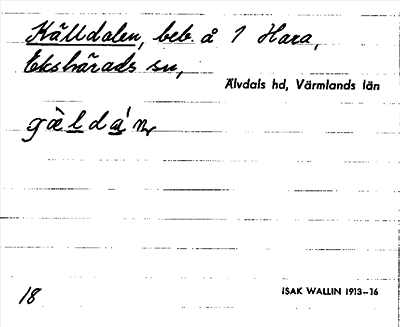 Källdalen, beb. å 1 Hara,
Ekshärads sn,
Älvdals hd, Värmlands län
18
ISAK WALLIN 1913–16